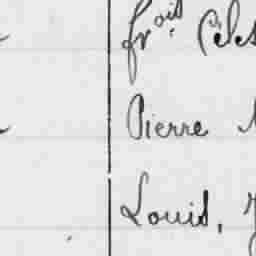 frois. Céles
Pierre
Louis,